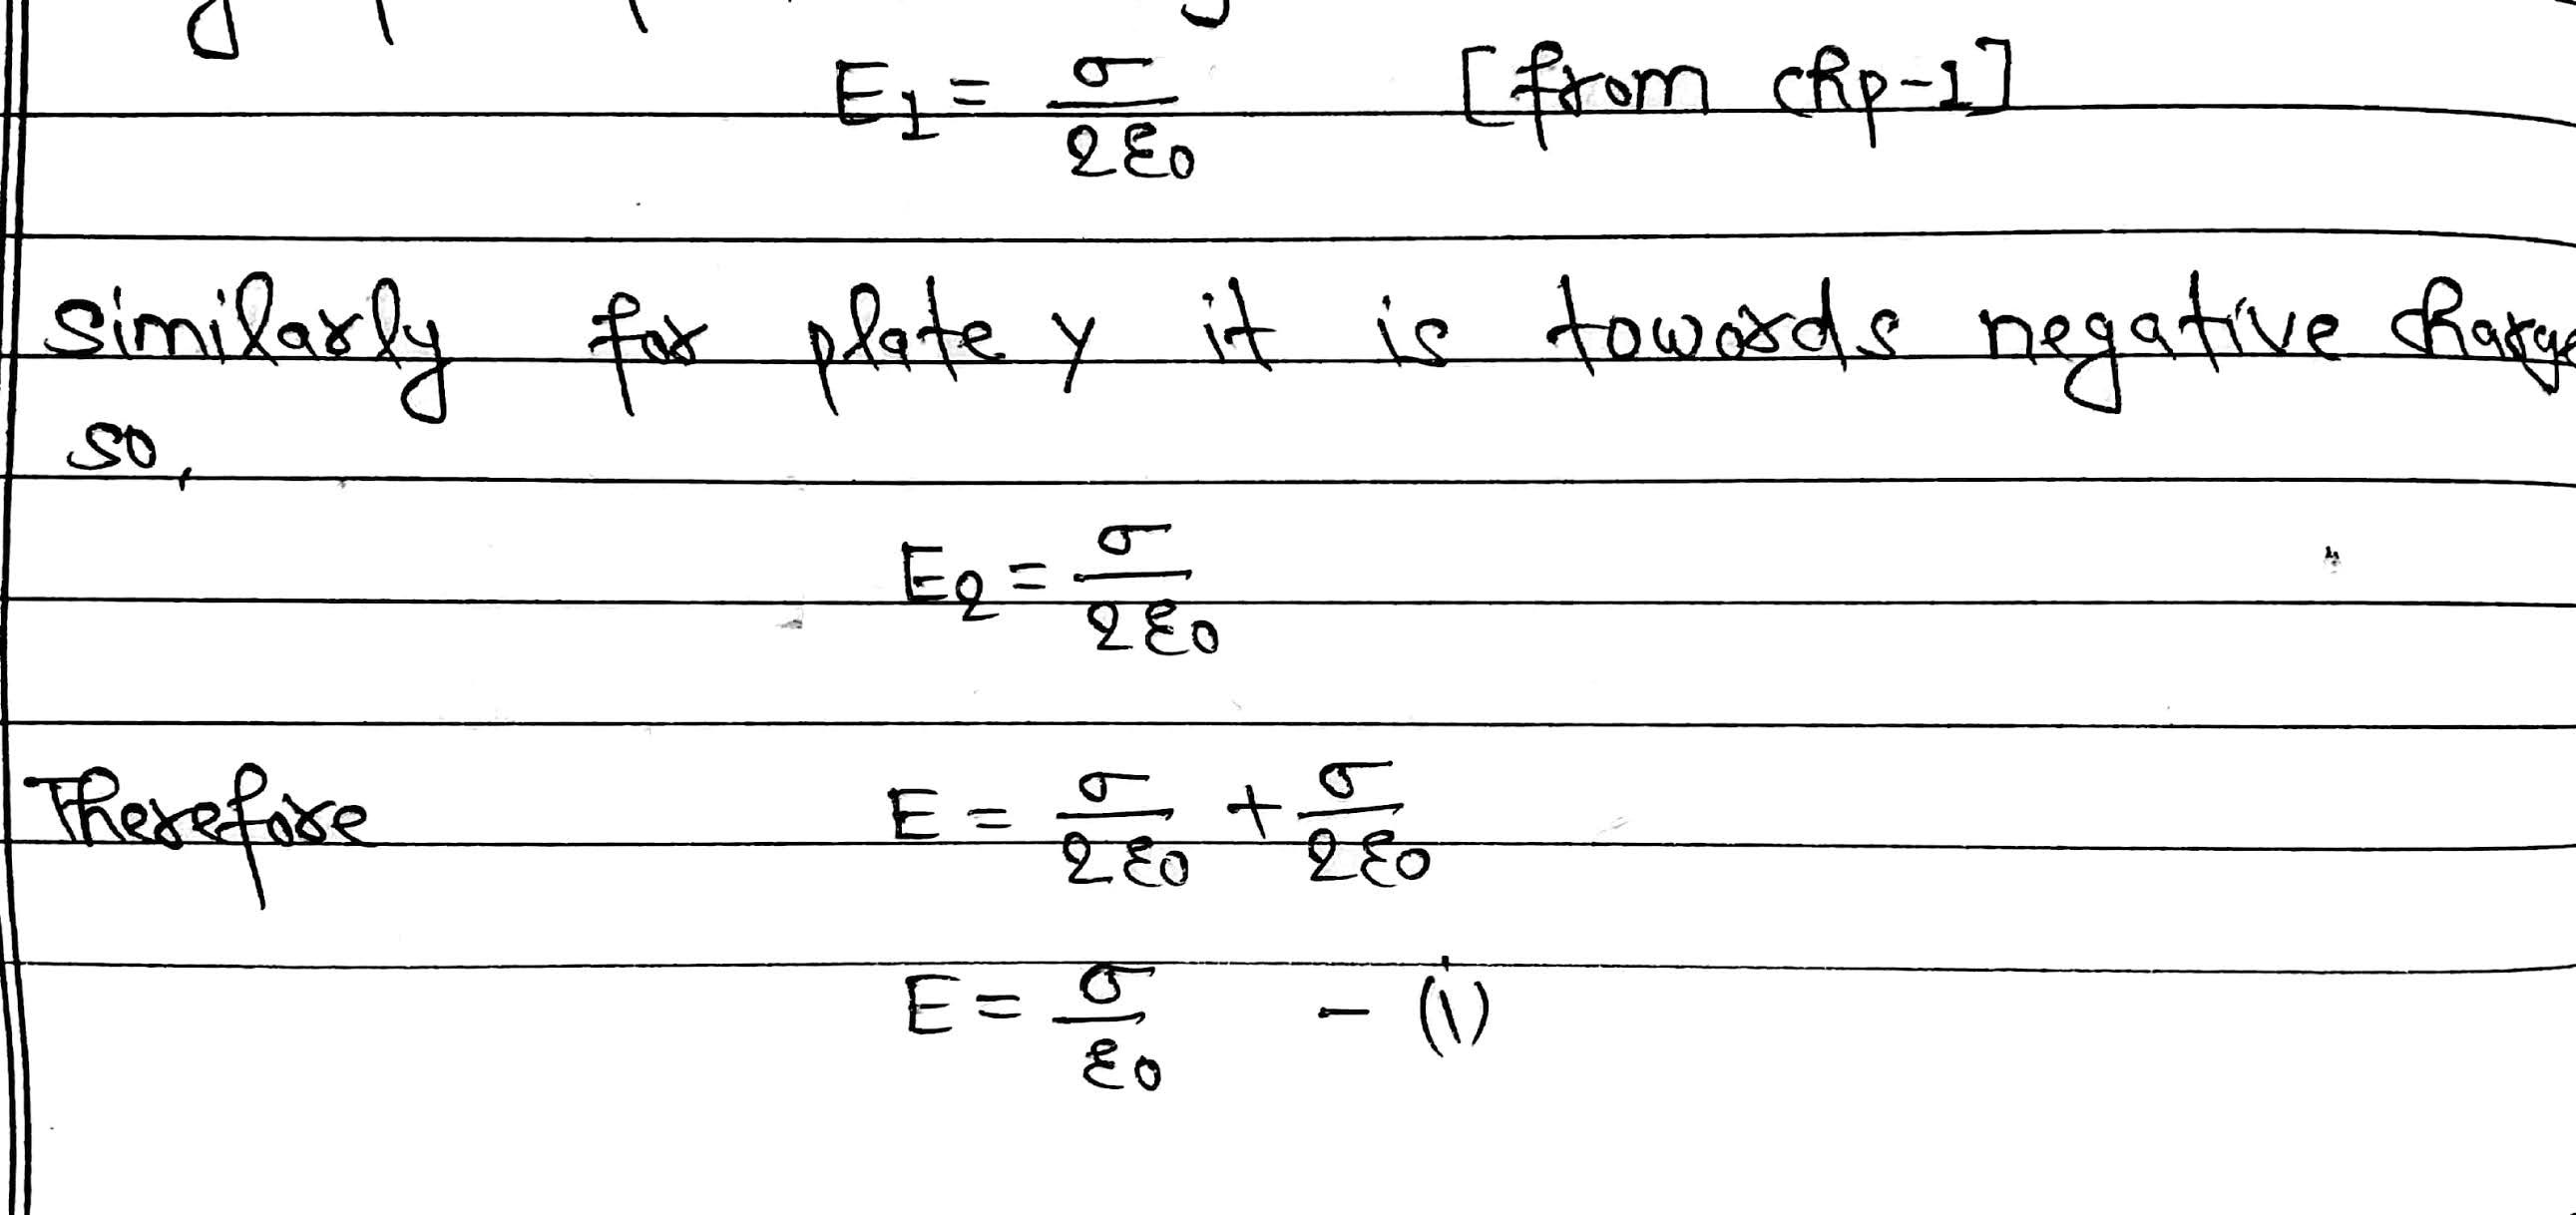 E₁ = σ/2ε₀ [from chp-1]
Similarly for plate y it is towards negative charge
so,
E₂ = σ/2ε₀
Therefore E = σ/2ε₀ + σ/2ε₀
E = σ/ε₀ - (i)